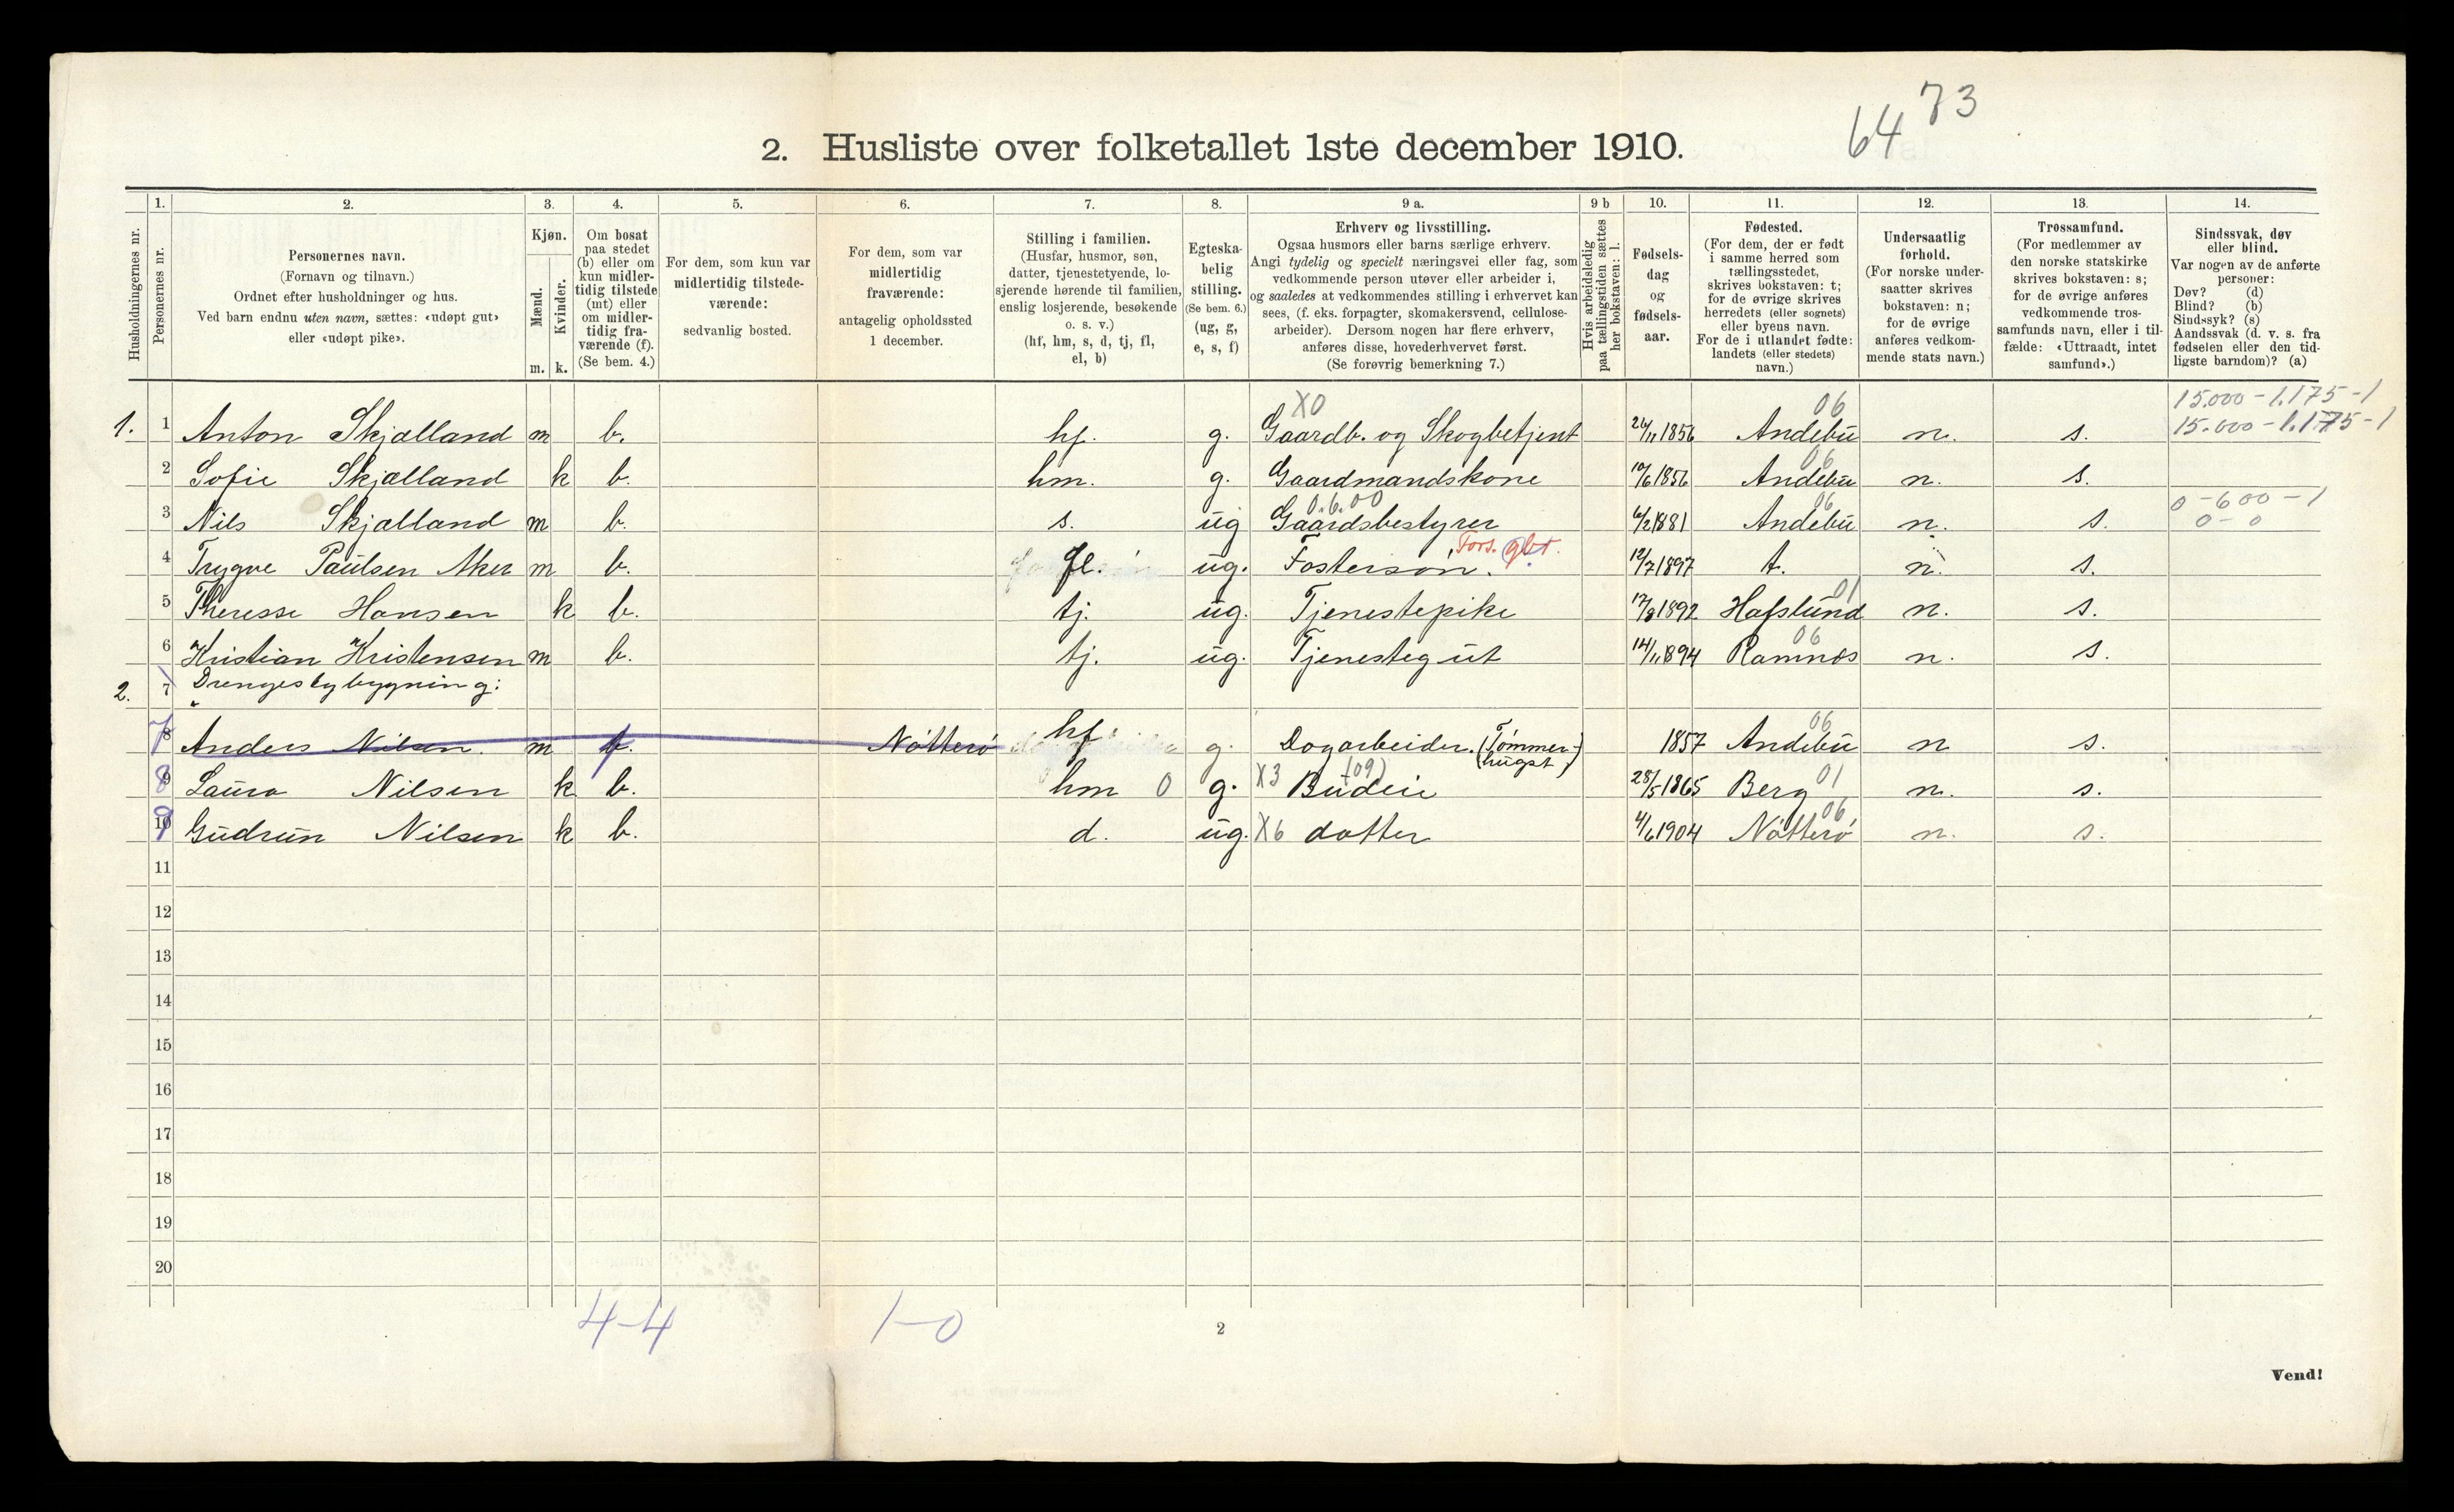 64 73
2. Husliste over folketallet 1ste december 1910.
Husholdningernes nr.
1. Personernes nr.
2. Personernes navn.
(Fornavn og tilnavn.)
Ordnet efter husholdninger og hus.
Ved barn endnu uten navn, sættes: «udøpt gut»
eller «udøpt pike».
3. Kjøn.
Mænd. Kvinder.
m. k.
4. Om bosat
paa stedet
(b) eller om
kun midler-
tidig tilstede
(mt) eller
om midler-
tidig fra-
værende (f).
(Se bem. 4.)
5. For dem, som kun var
midlertidig tilstede-
værende:
sedvanlig bosted.
6. For dem, som var
midlertidig
fraværende:
antagelig opholdssted
1 december.
7. Stilling i familien.
(Husfar, husmor, søn,
datter, tjenestetyende, lo-
sjerende hørende til familien,
enslig losjerende, besøkende
o. s. v.)
(hf, hm, s, d, tj, fl,
el, b)
8. Egteska-
belig
stilling.
(Se bem. 6.)
(ug, g,
e, s, f)
9 a. Erhverv og livsstilling.
Ogsaa husmors eller barns særlige erhverv.
Angi tydelig og specielt næringsvei eller fag, som
vedkommende person utøver eller arbeider i,
og saaledes at vedkommendes stilling i erhvervet kan
sees, (f. eks. forpagter, skomakersvend, cellulose-
arbeider). Dersom nogen har flere erhverv,
anføres disse, hovederhvervet først.
(Se forøvrig bemerkning 7.)
9 b Hvis arbeidsledig
paa tællingstiden sættes
her bokstaven: l.
10. Fødsels-
dag
og
fødsels-
aar.
11. Fødested.
(For dem, der er født
i samme herred som
tællingsstedet,
skrives bokstaven: t;
for de øvrige skrives
herredets (eller sognets)
eller byens navn.
For de i utlandet fødte:
landets (eller stedets)
navn.)
12. Undersaatlig
forhold.
(For norske under-
saatter skrives
bokstaven: n;
for de øvrige
anføres vedkom-
mende stats navn.)
13. Trossamfund.
(For medlemmer av
den norske statskirke
skrives bokstaven: s;
for de øvrige anføres
vedkommende tros-
samfunds navn, eller i til-
fælde: «Uttraadt, intet
samfund».)
14. Sindssvak, døv
eller blind.
Var nogen av de anførte
personer:
Døv? (d)
Blind? (b)
Sindssyk? (s)
Aandssvak (d. v. s. fra
fødselen eller den tid-
ligste barndom)? (a)
X0 06 15.000 - 1.175 - 1
1. 1 Anton Skjælland m b. hf. g. Gaardb. og Skogbetjent 26/11 1856 Andebu n. s. 15.000 - 1.175 - 1
2 Sofie Skjælland k b. hm. g. Gaardmandskone 10/6 1856 Andebu 06 n. s.
0.6.00 06 0 - 600 - 1
3 Nils Skjælland m b. s. ug Gaardsbestyrer 6/2 1881 Andebu n. s. 0 - 0
Fors. gbr.
4 Trygve Paulsen Aker m b. fl. ug. Fosterson. 12/7 1897 t. n. s.
5 Theresse Hansen k b. tj. ug. Tjenestepike 17/8 1892 Hafslund 01 n. s.
6 Kristian Kristensen m b. tj. ug. Tjenestegut 14/11 1894 Ramnes 06 n. s.
2. 7 Drengestybygning:
8 7 Anders Nilsen. m f. Nötterö hf. g. Dagarbeider. (Tömmer-
hugst) 1857 Andebu 06 n s.
9 8 Laura Nilsen k b. hm 0 g. X3 Budeie (09) 28/5 1865 Berg 01 n. s.
10 9 Gudrun Nilsen k b. d. ug. X6 datter 4/6 1904 Nötterö 06 n. s.
11
12
13
14
15
16
17
18
19
20
4-4 1-0
2
Vend!